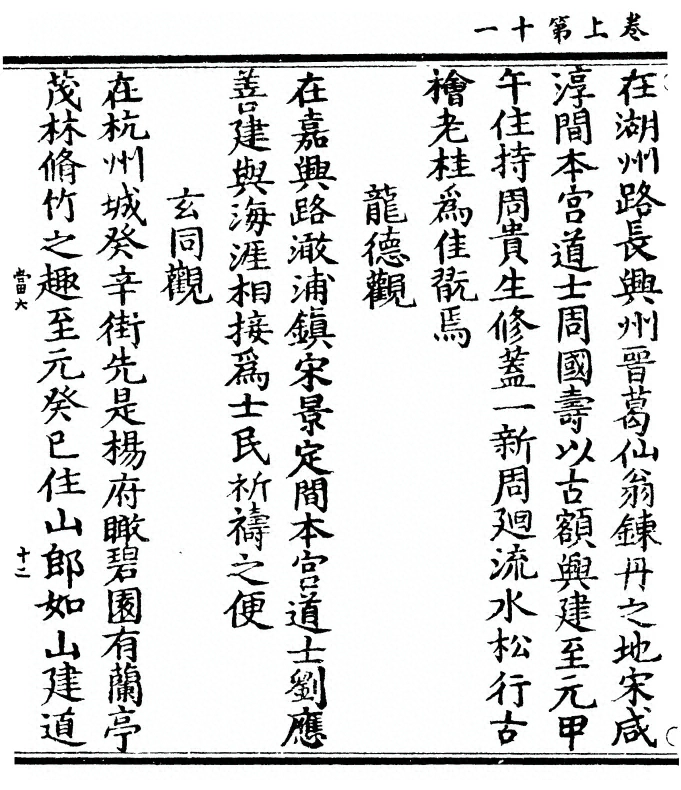 卷上第十一
在湖州路長興州晉葛仙翁鍊丹之地宋咸
淳間本宮道士周國壽以古額興建至元甲
午住持周貴生修蓋一新周廻流水松行古
檜老桂爲佳翫焉
龍德觀
在嘉興路澉浦鎮宋景定間本宮道士劉應
善建與海涯相接爲士民祈禱之便
玄同觀
在杭州城癸辛街先是楊府瞰碧園有蘭亭
茂林脩竹之趣至元癸巳住山郎如山建道
當六
十二